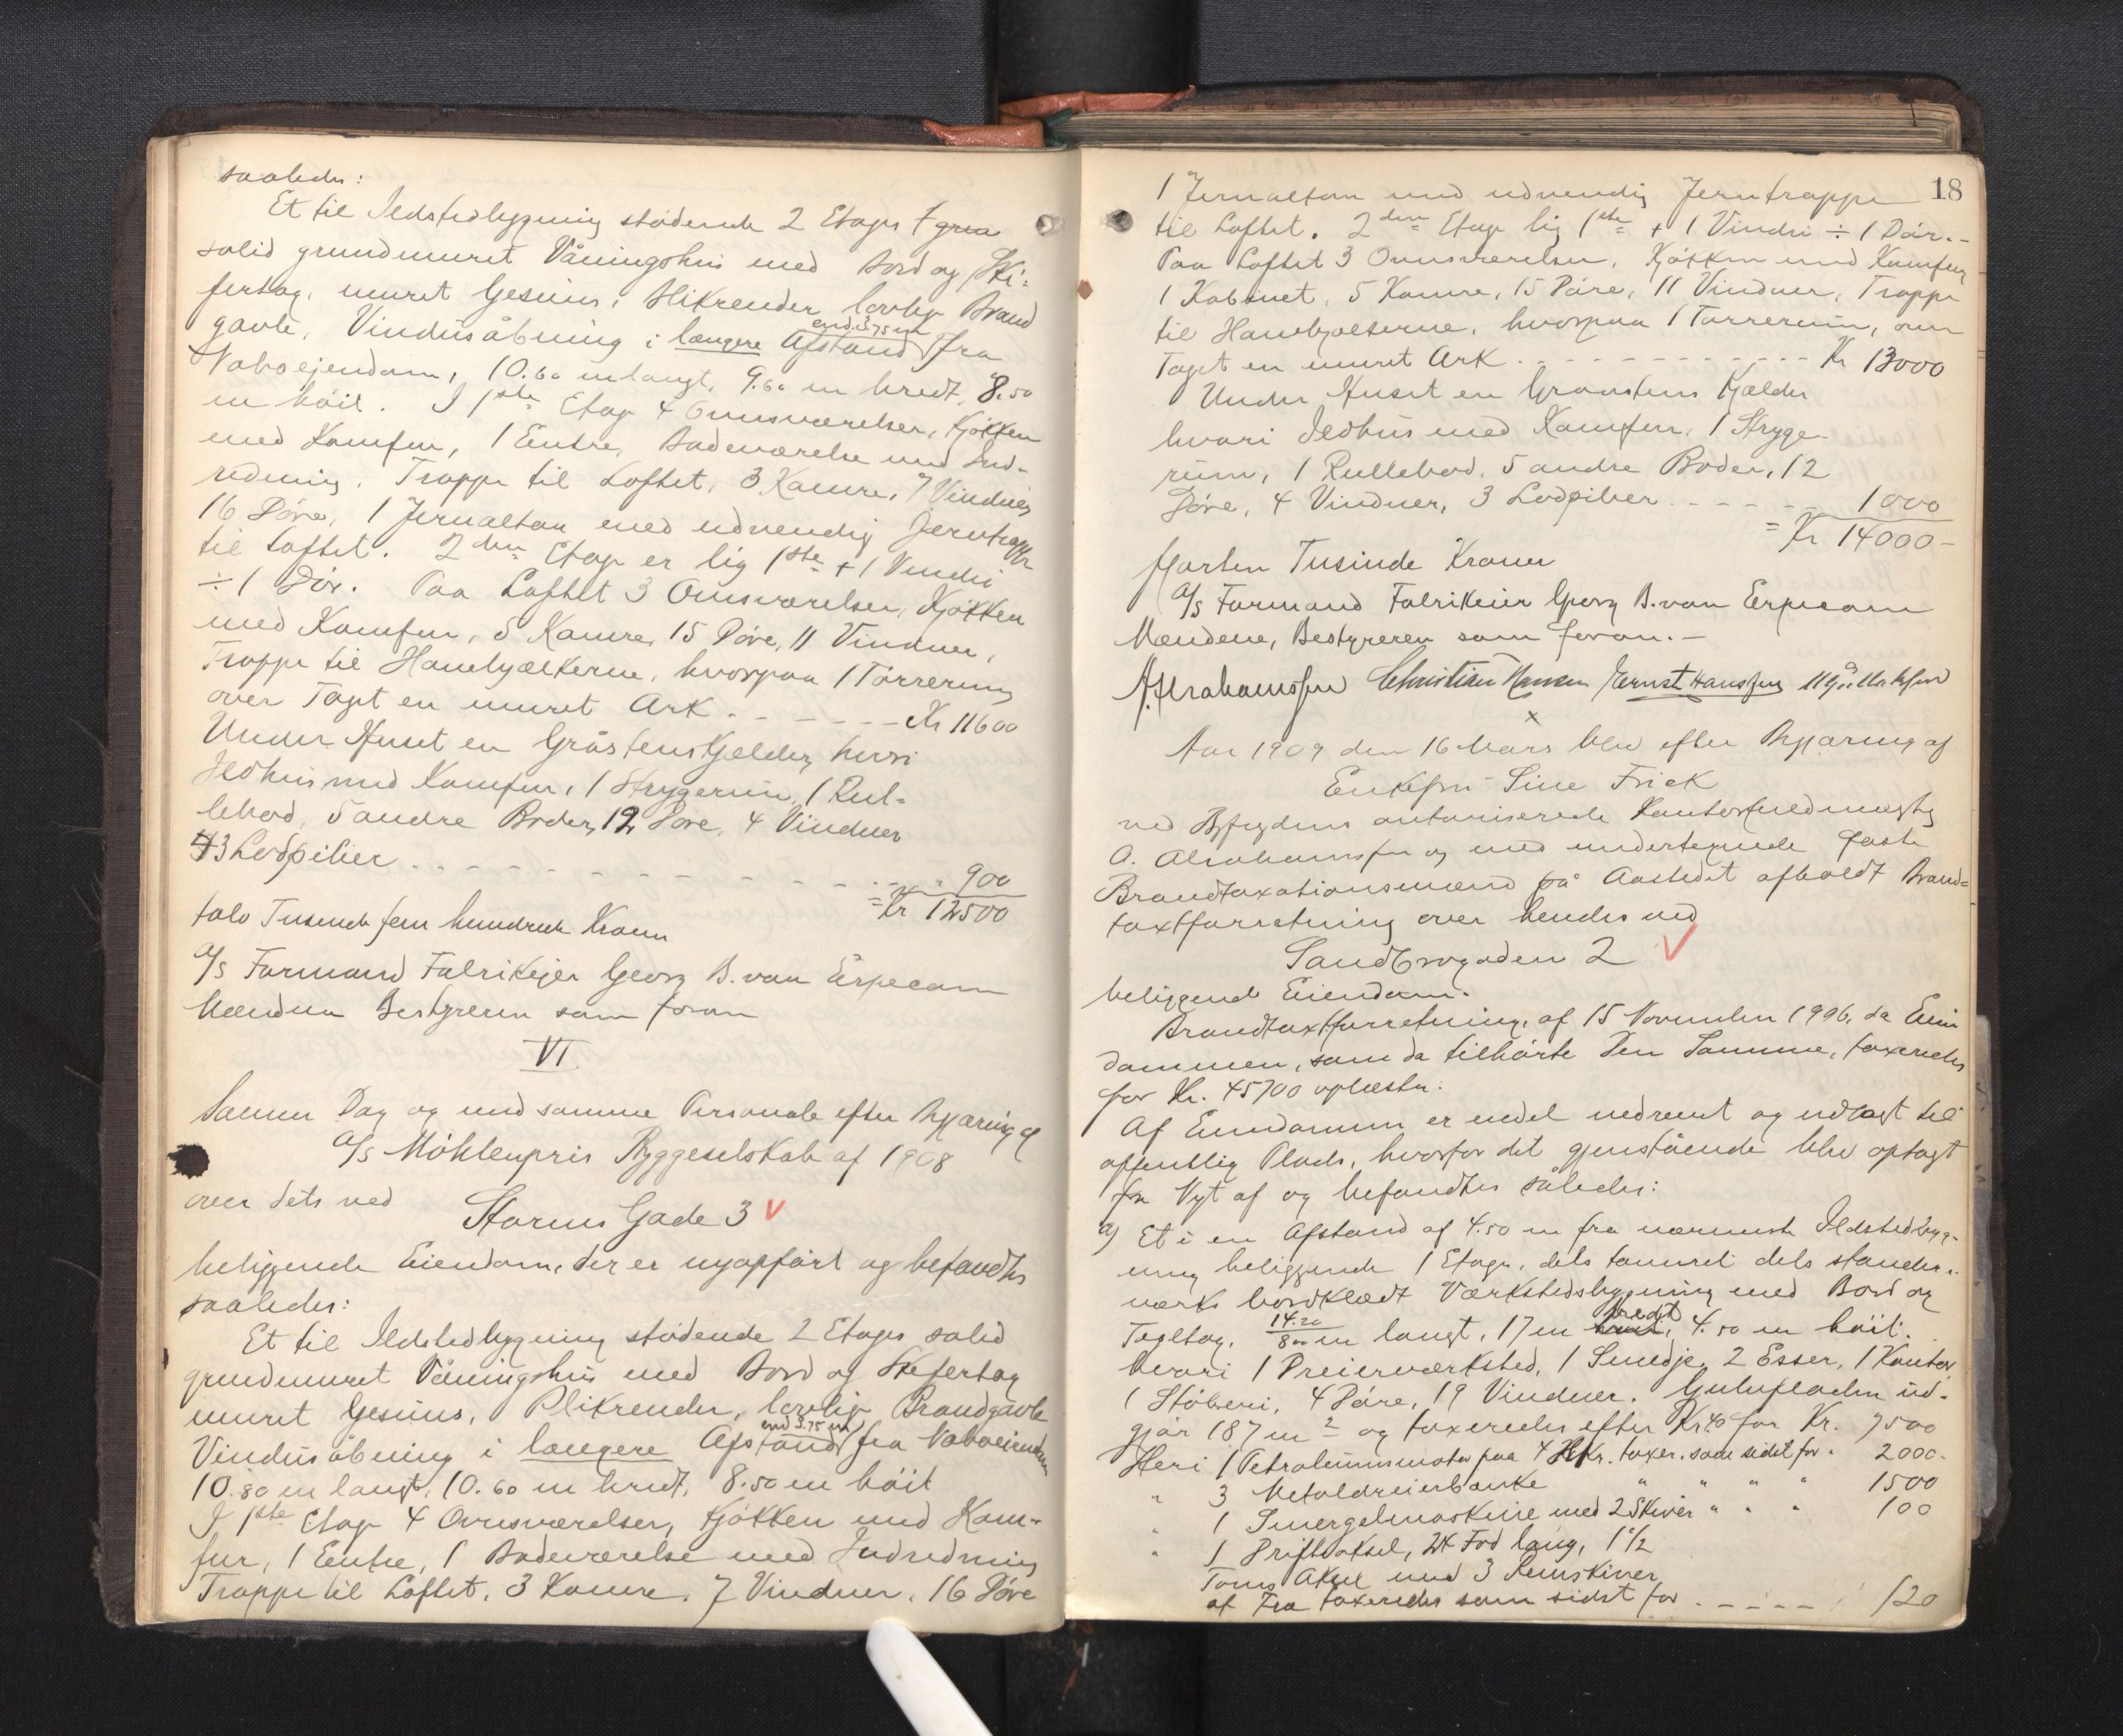 saaledes:
Et til Ildstedbygning stødende 2 Etages
solid grundmuret Våningshus med Bord og Ski-
fertag, muret Gesims, Blikrender, lovlig Brand
gavle, Vindusåbning i længere Afstand end 3.75 m fra
Naboejendom, 10.60 m langt, 9.60 m bredt, 8.50
m høit. I 1ste Etage 4 Ovnsværelser, Kjøkken
med Komfur, 1 Entre, Badeværelse med Ind-
redning, Trappe til Loftet, 3 Kamre, 7 Vinduer
16 Døre, 1 Jernaltan med udvendig Jerntrappe
til Loftet. 2den Etage er lig 1ste + 1 Vindu
÷ 1 Dør. Paa Loftet 3 Ovnsværelser, Kjøkken
med Komfur, 5 Kamre, 15 Døre, 11 Vinduer,
Trappe til Hanebjælkerne, hvorpaa 1 Tørrerum,
over Taget en muret Ark - - - - - - Kr 11600
Under Huset en Gråstens Kjælder, hvori
Ildhus med Komfur, 1 Strygerum, 1 Rul-
lebod, 5 andre Boder, 12 Døre, 4 Vinduer
3 Lodpiller - - - - - - - - - - - - - 900
= Kr 12500
tolv Tusinde fem hundrede Kroner
A/s Formand Fabrikejer Georg B. van Erpecom
Mændene Bestyreren som foran
VI
Samme Dag og med samme Personale efter Begjæring af
A/s Møhlenpris Byggeselskab af 1908
over dets ved
Storms Gade 3 V
beliggende Eiendom, der er nyopført og befandtes
saaledes:
Et til Ildstedbygning stødende 2 Etages solid
grundmuret Våningshus med Bord og Skifertag
muret Gesims, Blikrender, lovlig Brandgavle
Vindusåbning i længere Afstand end 3.75 m fra Naboeiendom
10.80 m langt, 10.60 m bredt, 8.50 m høit
I 1ste Etage 4 Ovnsværelser, Kjøkken med Kom-
fur, 1 Entre, 1 Badeværelse med Indredning
Trappe til Loftet, 3 Kamre, 7 Vinduer, 16 Døre
18
1 Jernaltan med udvendig Jerntrappe
til Loftet. 2den Etage lig 1ste + 1 Vindu ÷ 1 Dør. -
Paa Loftet 3 Ovnsværelser, Kjøkken med Komfur
1 Kabinet, 5 Kamre, 15 Døre, 11 Vinduer, Trappe
til Hanebjælkerne, hvorpaa 1 Tørrerum, over
Taget en muret Ark - - - - - - - - - Kr 13000
Under Huset en Graastens Kjælder
hvori Ildhus med Komfur, 1 Stryge-
rum, 1 Rullebod, 5 andre Boder, 12
Døre, 4 Vinduer, 3 Lodpiller - - - - - 1000
= Kr 14000 -
fjorten Tusinde Kroner
A/s Formand Fabrikeier Georg B. van Erpecom
Mændene, Bestyreren som foran. -
A. Abrahamsen Christian Hansen Ernst Hansen
x
Aar 1909 den 16 Mars blev efter Begjæring af
Enkefru Sine Frick
ved Byfogdens autoriserede Kontorfuldmægtig
A. Abrahamsen og med undertegnede faste
Brandtaxationsmænd på Aastedet afholdt Brand-
taxtforretning over hendes ved
Sandbrogaden 2 V
beliggende Eiendom.
Brandtaxtforretning af 15 November 1906, da Eien
dommen, som da tilhørte Den Samme, taxeredes
for Kr. 45700 oplæstes.
Af Eiendommen er endel nedrevet og udlagt til
offentlig Plads, hvorfor det gjenstående blev optagt
fra Nyt af og befandtes således:
a) Et i en Afstand af 4.50 m fra nærmeste Ildstedbyg-
ning beliggende 1 Etages, dels tømret dels stender-
værks bordklædt Værkstedsbygning med Bord og
Tegltag, 14.20/8.00 m langt, 17 m bredt, 4.50 m høit.
hvori 1 Dreierværksted, 1 Smedje, 2 Esser, 1 Kontor
1 Støberi, 4 Døre, 19 Vinduer. Gulvfladen ud-
gjør 187 m2 og taxeredes efter Kr 40 for Kr. 7500
Heri 1 Petroleumsmotor paa 4 HKr. taxer. som sidst for " 2000.
" 3 Metaldreierbænke " " " " 1500
" 1 Smergelmaskine med 2 Skiver " " " 100
" 1 Driftsaksel, 24 Fod lang, 1 1/2
Toms Aksel med 3 Remskiver
af Træ taxeredes som sidst for - - - - - 120